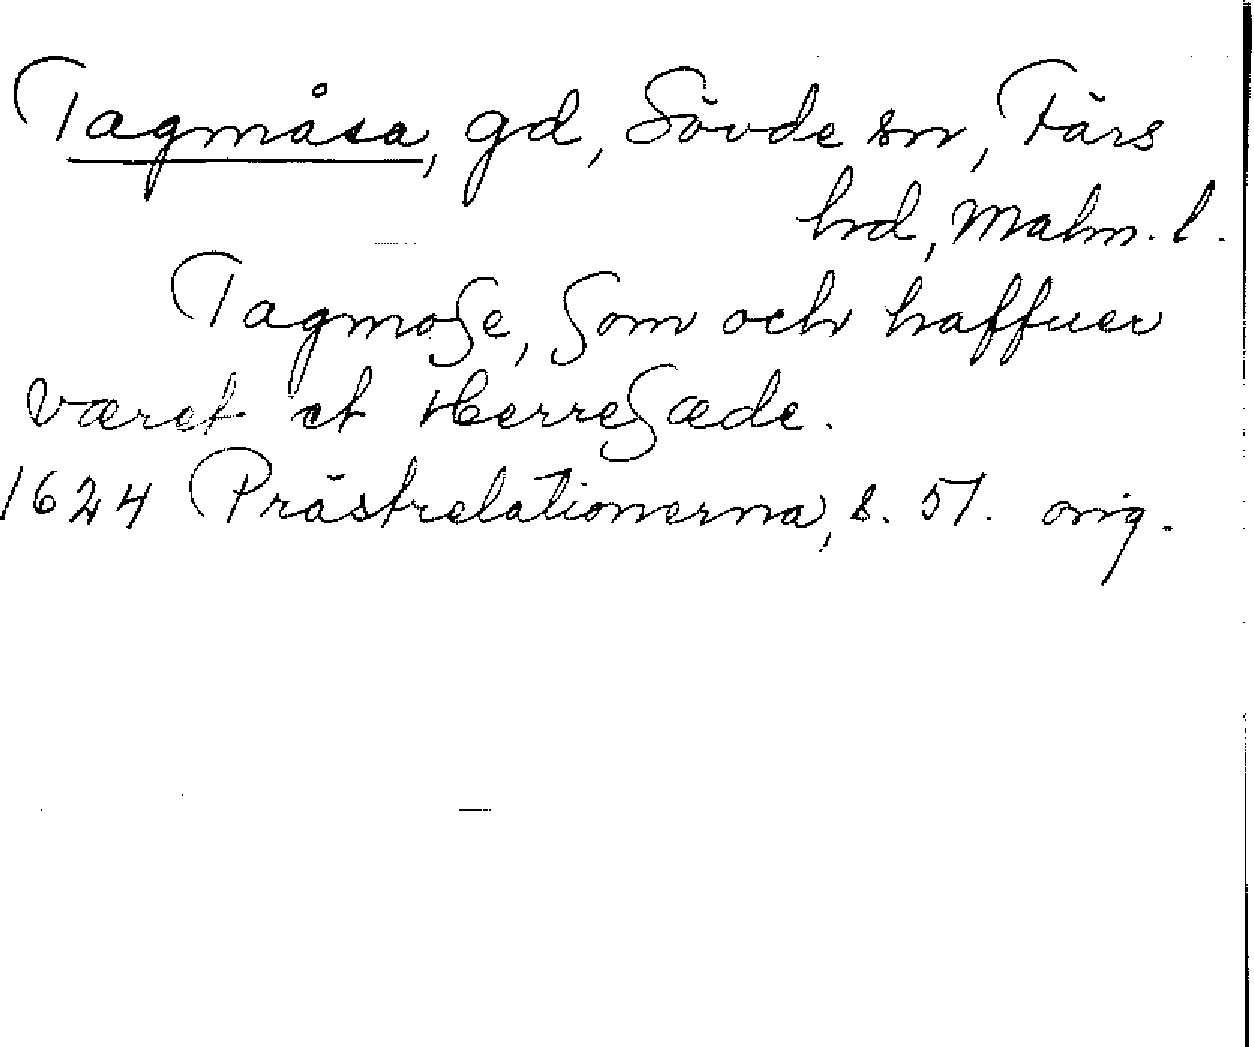 Tagmåsa, gd, Sövde sn, Färs
hd, Malm. l.
Tagmoße, som och haffuer
været et Herresæde.
1624 Prästrelationerna, s. 51. orig.